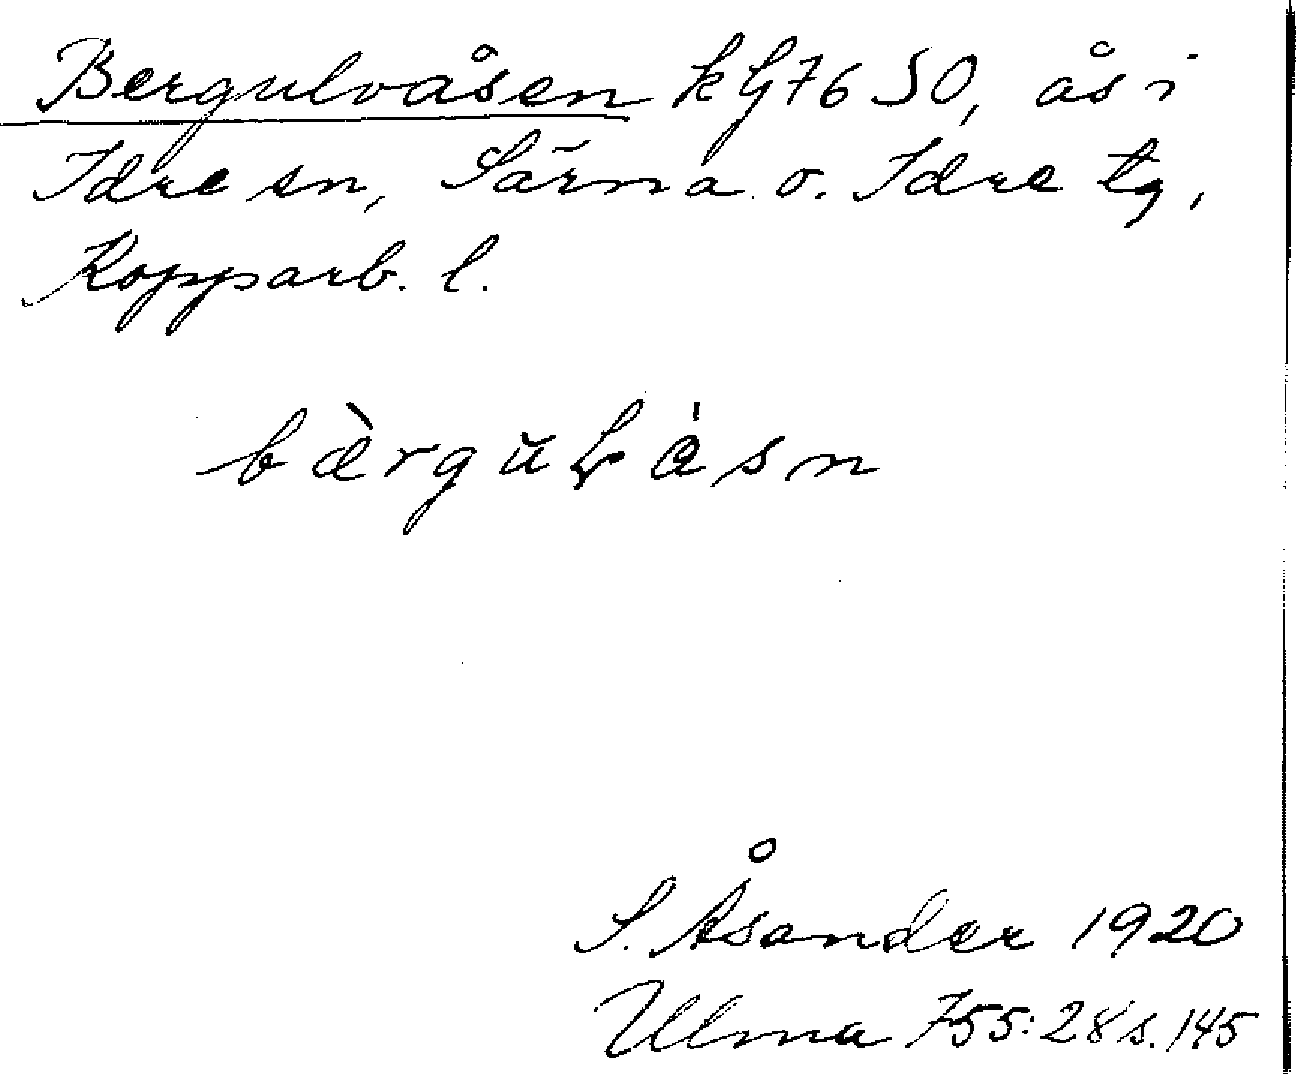 Bergulvåsen kbl 76 SO, ås i
Idre sn, Särna o. Idre tg,
Kopparb. l.
S. Åsander 1920
Ulma 755:28 s. 145